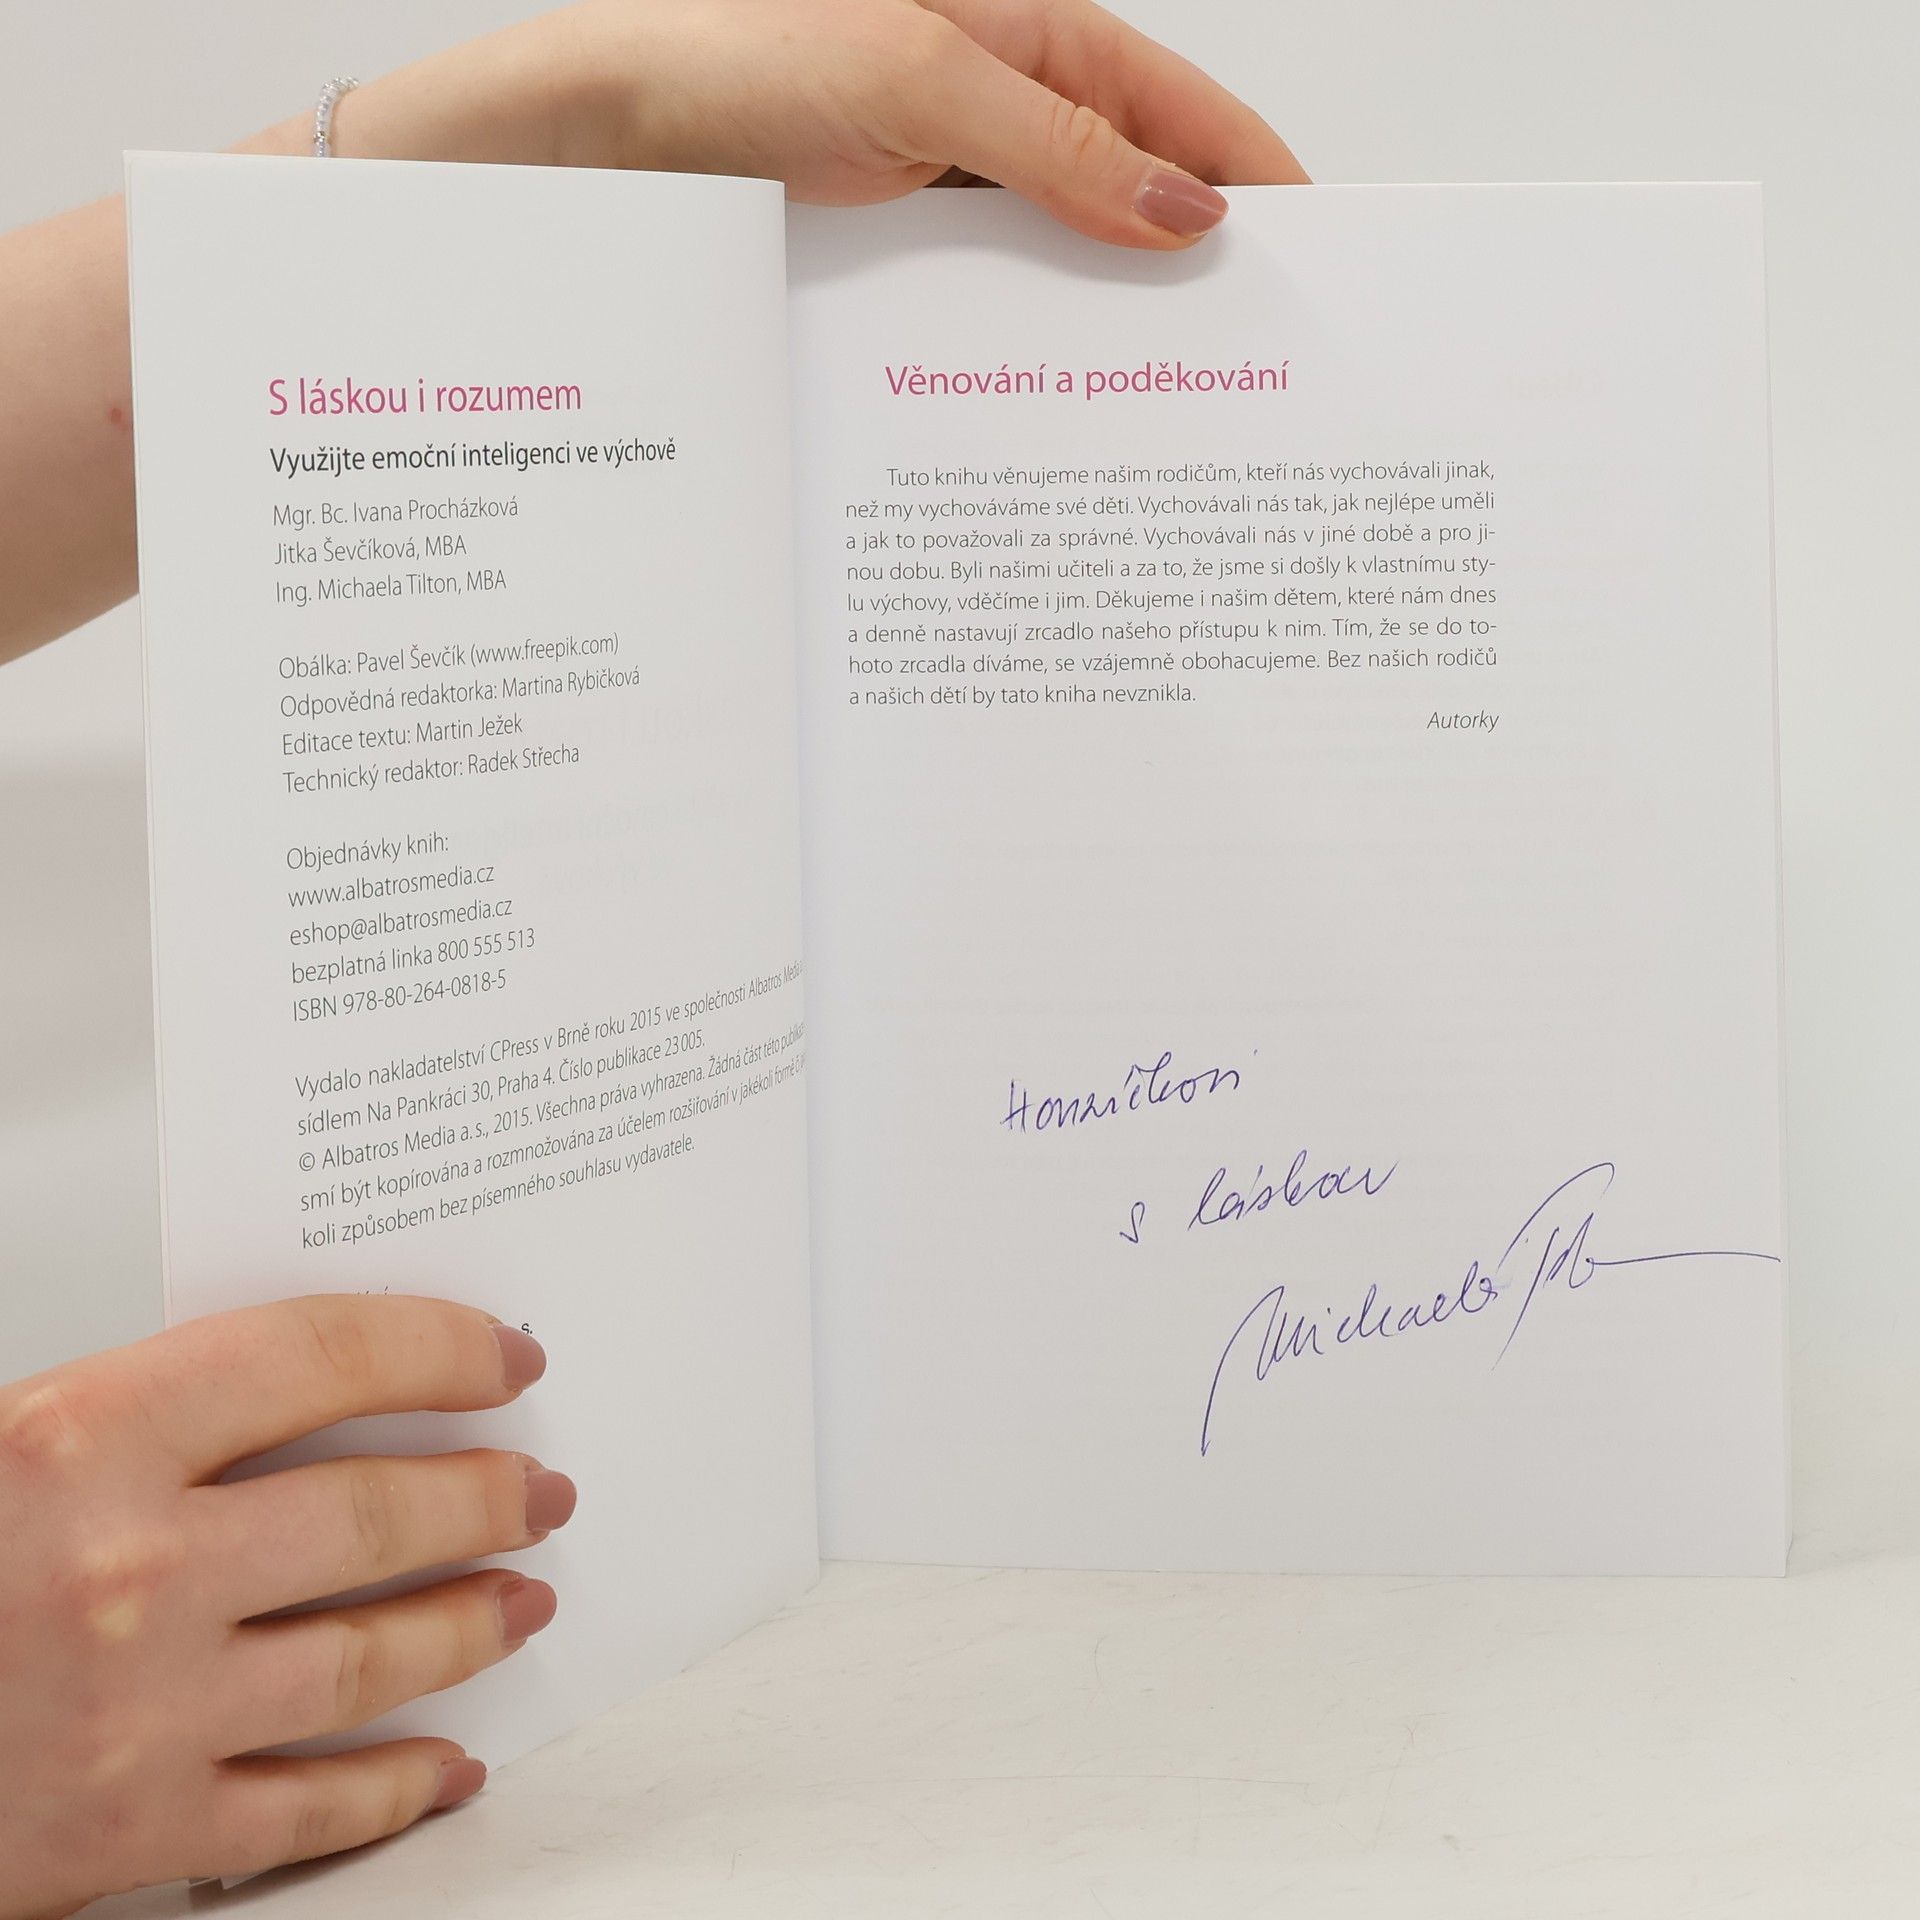 S láskou i rozumem
Využijte emoční inteligenci ve výchově
Mgr. Bc. Ivana Procházková
Jitka Ševčíková, MBA
Ing. Michaela Tilton, MBA
Obálka: Pavel Ševčík (www.freepik.com)
Odpovědná redaktorka: Martina Rybičková
Editace textu: Martin Ježek
Technický redaktor: Radek Střecha
Objednávky knih:
www.albatrosmedia.cz
eshop@albatrosmedia.cz
bezplatná linka 800 555 513
ISBN 978-80-264-0818-5
Vydalo nakladatelství CPress v Brně roku 2015 ve společnosti Albatros Media
sídlem Na Pankráci 30, Praha 4. Číslo publikace 23 005.
© Albatros Media a. s., 2015. Všechna práva vyhrazena. Žádná část této
smí být kopírována a rozmnožována za účelem rozšiřování v jakékoli formě či
koli způsobem bez písemného souhlasu vydavatele.
s.
Věnování a poděkování
Tuto knihu věnujeme našim rodičům, kteří nás vychovávali jinak,
než my vychováváme své děti. Vychovávali nás tak, jak nejlépe uměli
a jak to považovali za správné. Vychovávali nás v jiné době a pro ji-
nou dobu. Byli našimi učiteli a za to, že jsme si došly k vlastnímu sty-
lu výchovy, vděčíme i jim. Děkujeme i našim dětem, které nám dnes
a denně nastavují zrcadlo našeho přístupu k nim. Tím, že se do to-
hoto zrcadla díváme, se vzájemně obohacujeme. Bez našich rodičů
a našich dětí by tato kniha nevznikla.
Autorky
Honzíčkovi
s láskou
Michaela